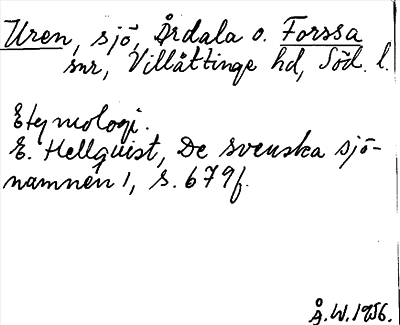 Uren, sjö, Årdala o. Forssa
snr, Villåttinge hd, Söd. l.
Etymologi.
E. Hellquist, De svenska sjö-
namnen 1, s. 679f.
Å.W. 1956.